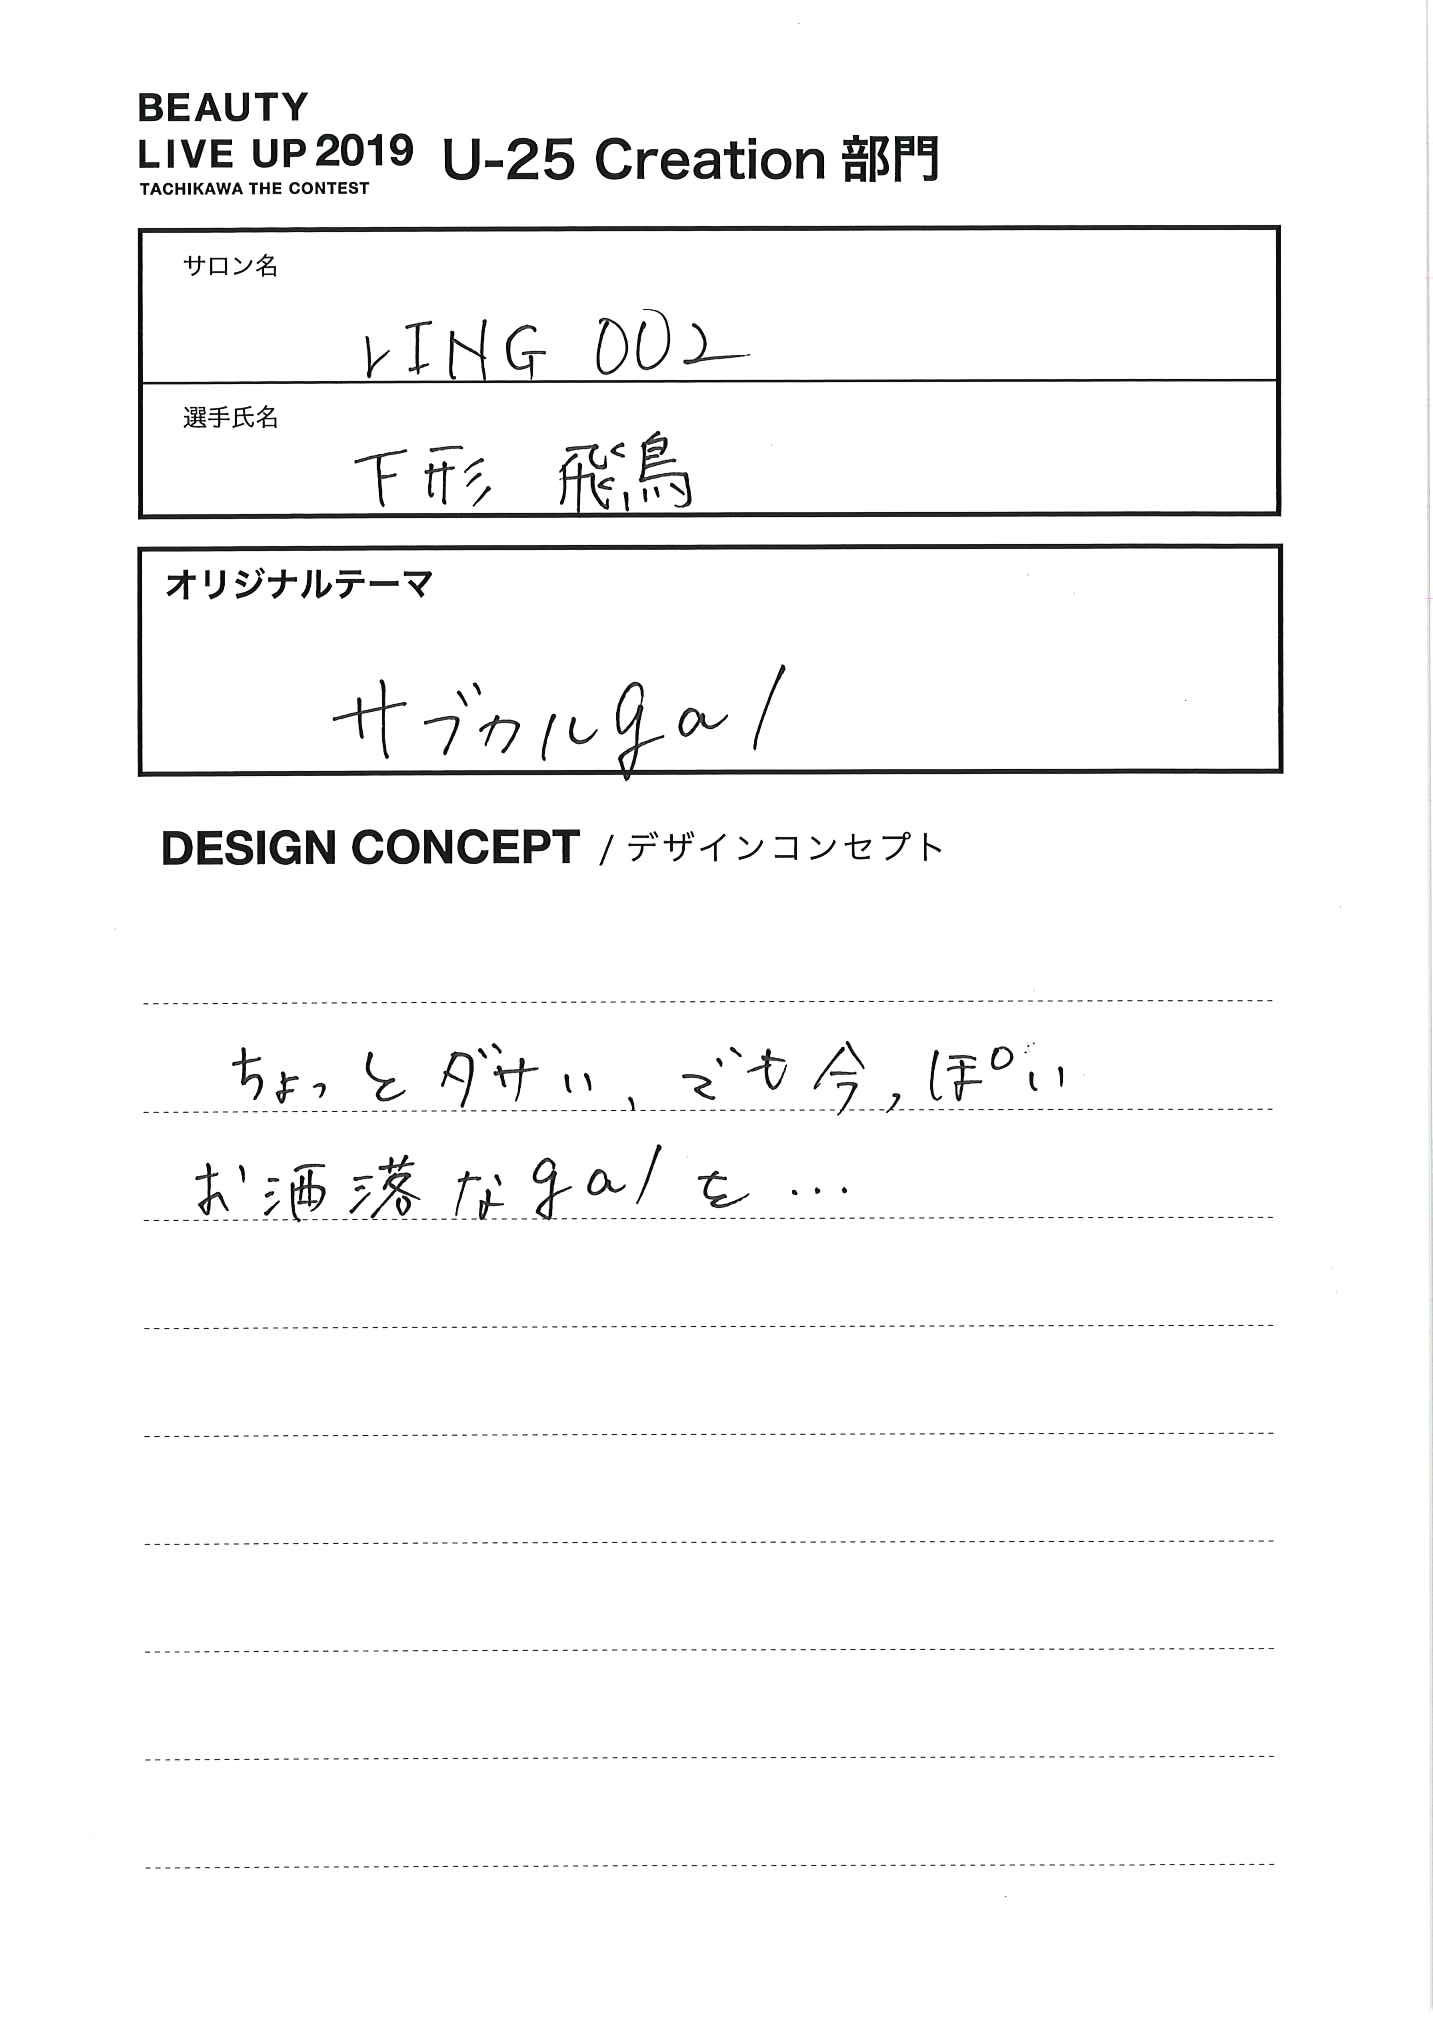 BEAUTY
LIVE UP 2019 U-25 Creation 部門
TACHIKAWA THE CONTEST
サロン名
rING 002
選手氏名
下形 飛鳥
オリジナルテーマ
サブカルgal
DESIGN CONCEPT / デザインコンセプト
ちょっとダサい、でも今っぽい
お洒落なgalを…